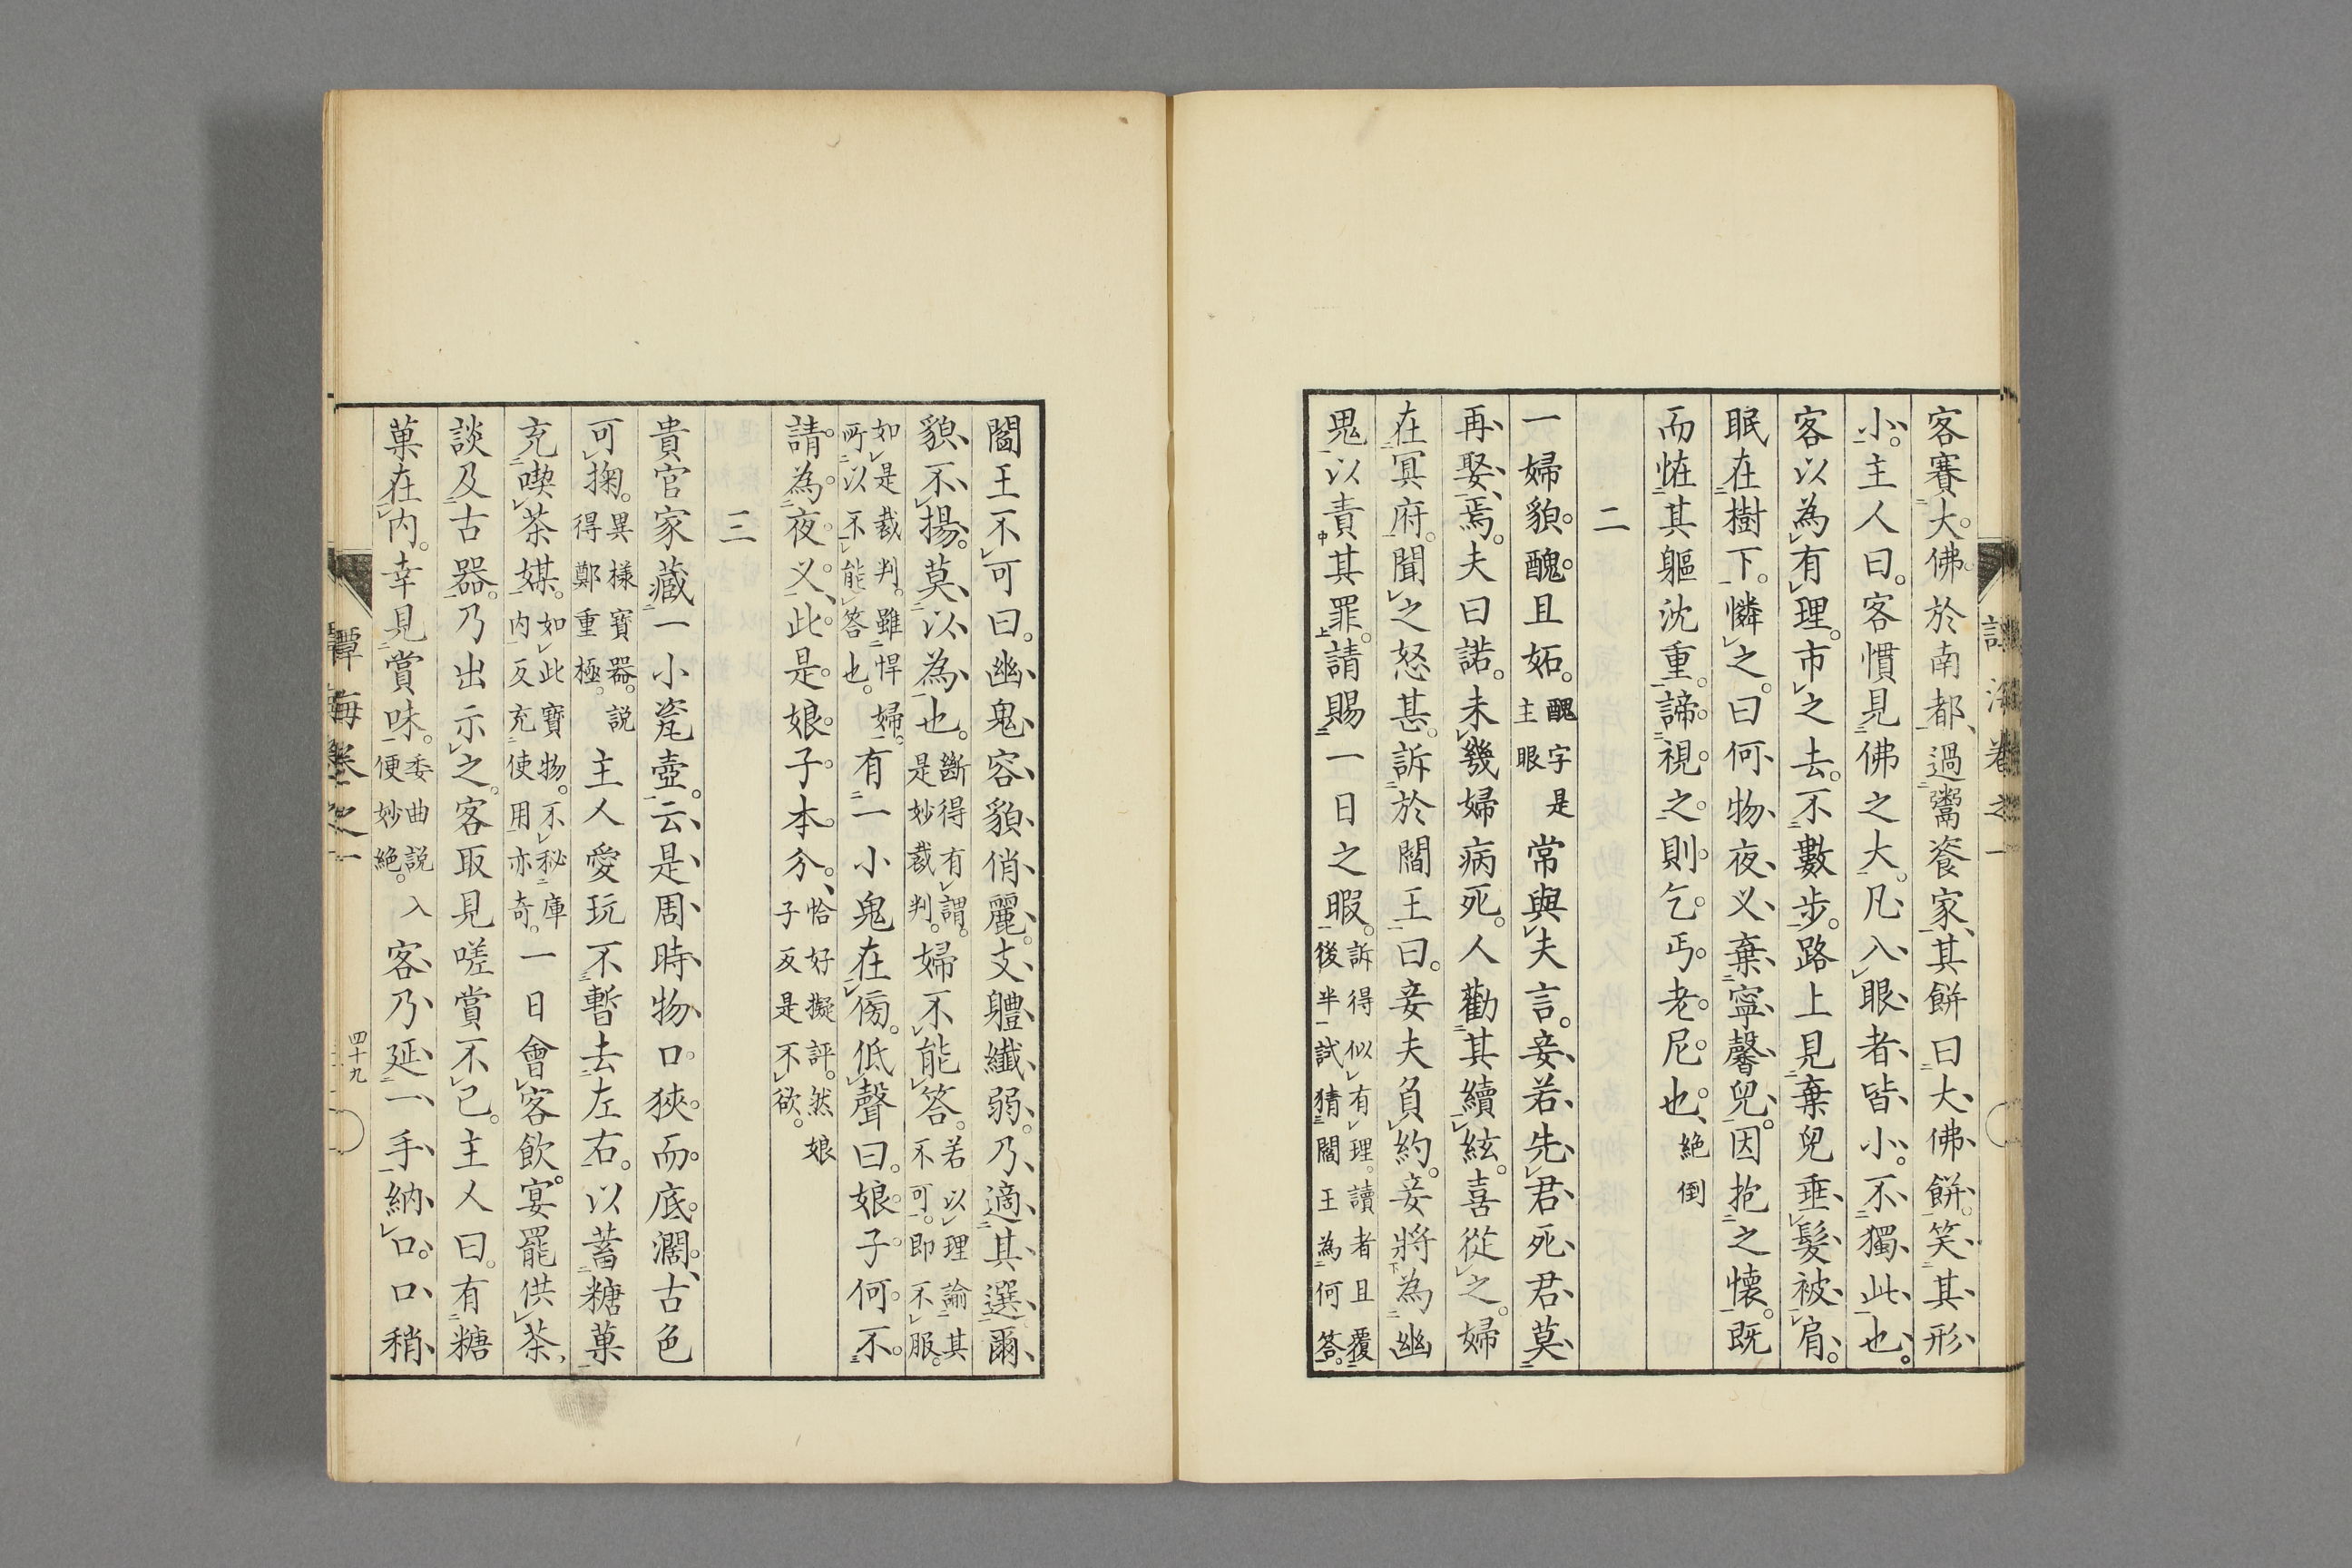 譚海卷之一
客賽大佛於南都、過鬻餈家、其餅曰大佛餅。笑其形
小。主人曰。客慣見佛之大。凡入眼者皆小。不獨此也。
客以為有理。市之去。不數步。路上見棄兒垂髮被肩。
眠在樹下。憐之。曰何物夜叉棄寧馨兒。因抱之懷。既
而恠其軀沈重。諦視之。則乞丐老尼也。絶倒
二
一婦貌醜且妬。醜字是主眼常與夫言。妾若先君死君莫
再娶焉。夫曰諾。未幾婦病死。人勸其續絃。喜從之。婦
在冥府。聞之怒甚。訴於閻王曰。妾夫負約。妾將為幽
鬼以責其罪。請賜一日之暇。訴得似有理。讀者且覆後半試猜閻王為何答。
閻王不可曰。幽鬼容貌俏麗。支軆纖弱。乃適其選。爾
貌不揚。莫以為也。斷得有謂。是妙裁判。婦不能答。若以理論其不可。即不服。
如是裁判。雖悍婦。所以不能答也。有一小鬼在傍。低聲曰。娘子何不
請為夜叉。此是娘子本分。恰好擬評。然娘子反是不欲。
三
貴官家藏一小甆壺。云是周時物口狹而底濶。古色
可掬。異樣寶器。說得鄭重極。主人愛玩不暫去左右。以蓄糖菓
充喫茶媒。如此寶物。不秘庫内反充使用亦奇。一日會客飲宴罷供茶、
談及古器。乃出示之。客取見嗟賞不已。主人曰。有糖
菓在内。幸見賞味。委曲説入便妙絶。客乃延一手納口。口稍
譚海卷之一
四十九